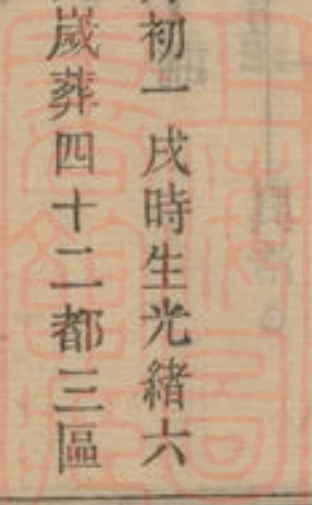 初一戌時生光緒六
歲葬四十二都三區